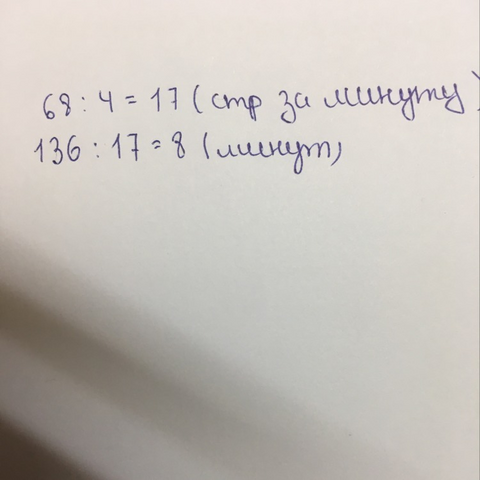 68 : 4 = 17 (стр за минуту)
136 : 17 = 8 (минут)